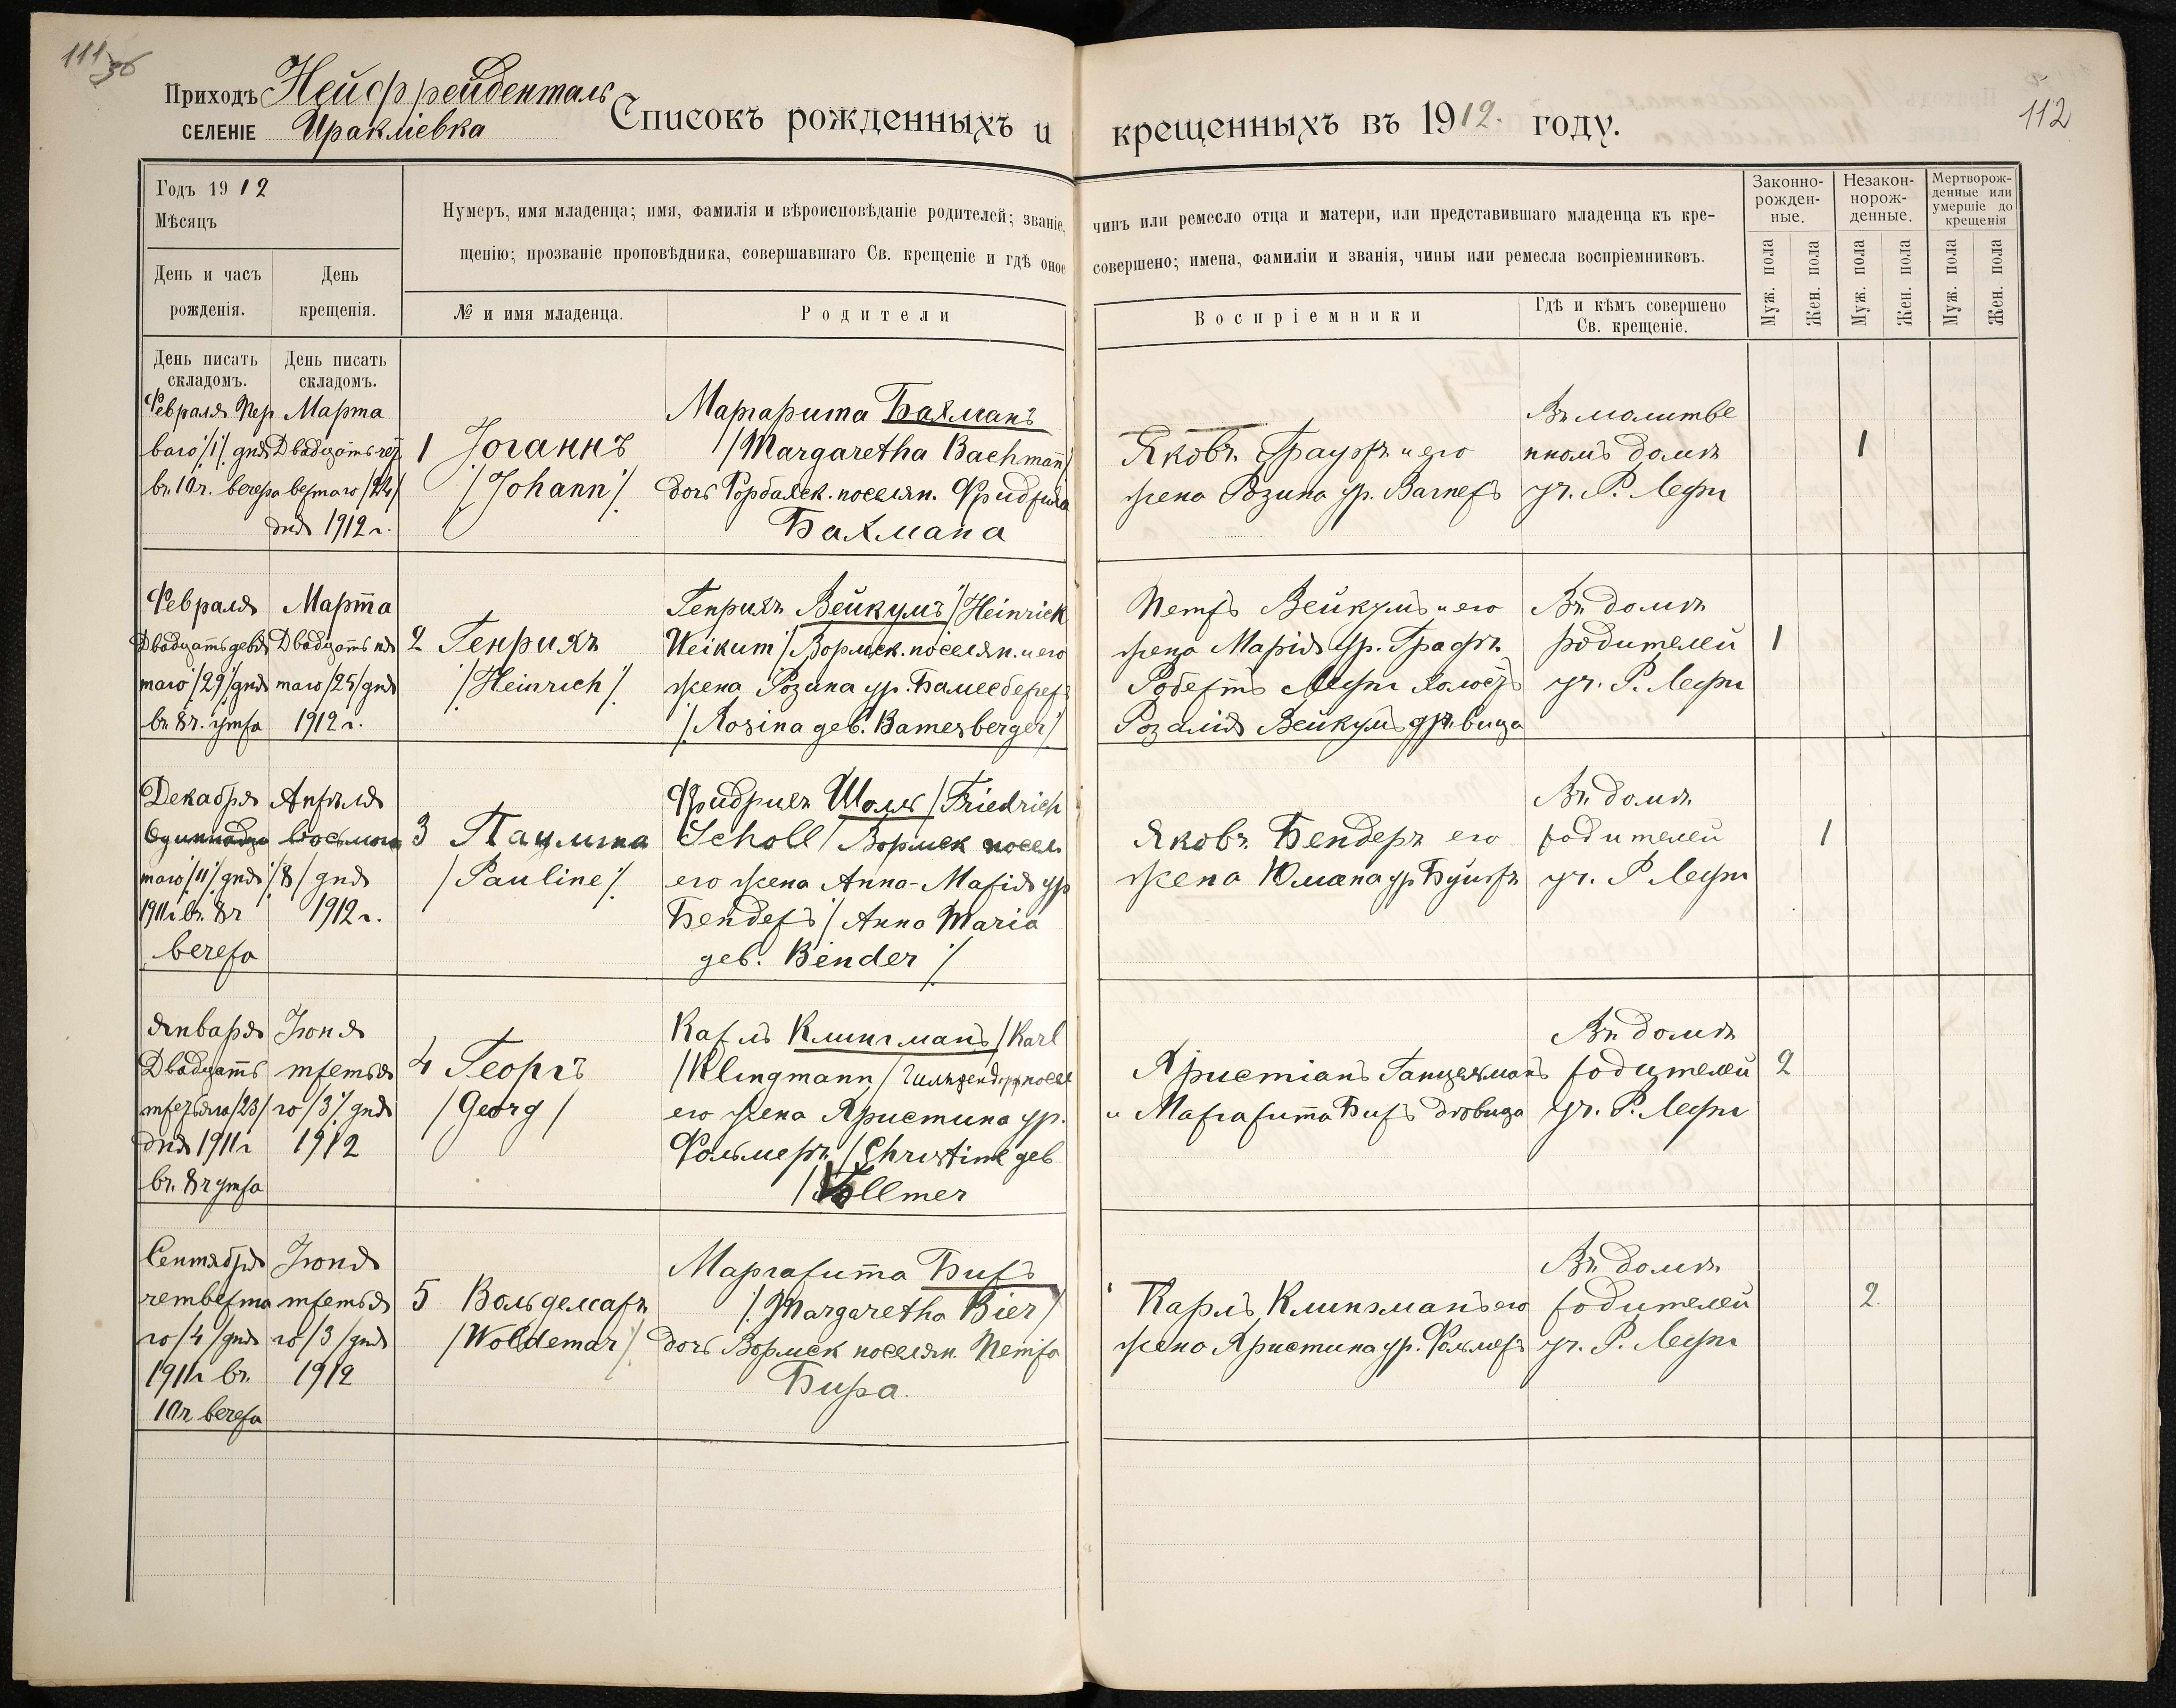 111
36
Приходъ Нейффрейденталь
селеніе Ираклiевка
Списокъ рожденныхъ и крещенныхъ въ 1912. году.
112
Годъ 1912
Мѣсяцъ
День и часъ рожденія.
День крещенія.
Нумеръ, имя младенца; имя, фамилія и вѣроисповѣданіе родителей; званіе, чинъ или ремесло отца и матери, или представившаго младенца къ кре-
щенію; прозваніе проповѣдника, совершавшаго Св. крещеніе и гдѣ оное совершено; имена, фамиліи и званія, чины или ремесла воспріемниковъ.
№ и имя младенца.
Родители
Воспріемники
Гдѣ и кѣмъ совершено
Св. крещеніе.
Законно-
рожден-
ные.
Незакон-
норож-
денные.
Мертворож-
денные или
умершіе до
крещенія
Муж. пола
Жен. пола
Муж. пола
Жен. пола
Муж. пола
Жен. пола
День писать
складомъ.
День писать
складомъ.
Февраля Пер
ваго /1/ дня
въ 10 ч. вечера
Марта
Двадцать чет
вертаго /24/
дня 1912 г.
1 Іоганнъ
/Johann/
Маргарита Бахманъ
/Margaretha Bachmann/
дочь Форбалск. поселян. Фридриха
Бахмана
Яковъ Грауфъ и его
жена Розина ур.
Въ молитве
нномъ домѣ
уч. Р. Лефи
1
Февраля
Двадцать девя
таго /29/ дня
въ 8 ч. утра
Марта
Двадцать пя
таго /25/ дня
1912 г.
2 Генрихъ
/Heinrich/
Генрихъ Вейкумъ /Heinrich
Weikum/ Вормск. поселян. и его
жена Розина ур. Бамесбергеръ
/Rosina geb. Bamesberger/
Петръ Вейкумъ и его
жена Марія ур. Графъ
Робертъ Лефи холостъ
Розалія Вейкумъ дѣвица
Въ домѣ
родителей
уч. Р. Лефи
1
Декабря
Одиннадца
таго /11/ дня
1911 г. въ 8 ч
вечера
Апрѣля
восьмого
/8/ дня
1912 г.
3 Паулина
/Pauline/
Фридрихъ Шолль /Friedrich
Scholl/ Вормск посел
его жена Анна-Марія ур
Бендеръ /Anna Maria
geb. Bender/
Яковъ Бендеръ его
жена Юліана ур
Въ домѣ
родителей
уч. Р Лефи
1
Января
Двадцать
третьяго /23/
дня 1911 г
въ 8 ч утра
Іюня
третья
го /3/ дня
1912
4 Георгъ
/Georg/
Карлъ Клингманъ /Karl
/Klingmann/ Гильдендорф посел
его жена Христина ур.
Фольмеръ /Christine geb
/Vollmer
Христіанъ Ганцельманъ
и Маргарита Биръ дѣвица
Въ домѣ
родителей
уч. Р. Лефи
2
Сентября
четверта
го /4/ дня
1911 г въ
10 ч вечера
Іюня
третья
го /3/ дня
1912
5 Вольдемаръ
/Woldemar/
Маргарита Биръ
/Margaretha Bier/
дочь Вормск поселян. Петра
Бира.
Карлъ Клингманъ его
жена Христина ур. Фольмеръ
Въ домѣ
родителей
уч. Р. Лефи
2.